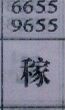 6655
9655
稼